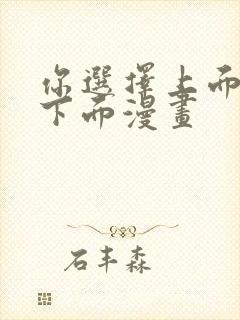 你選擇上而
下而漫畫
石丰森